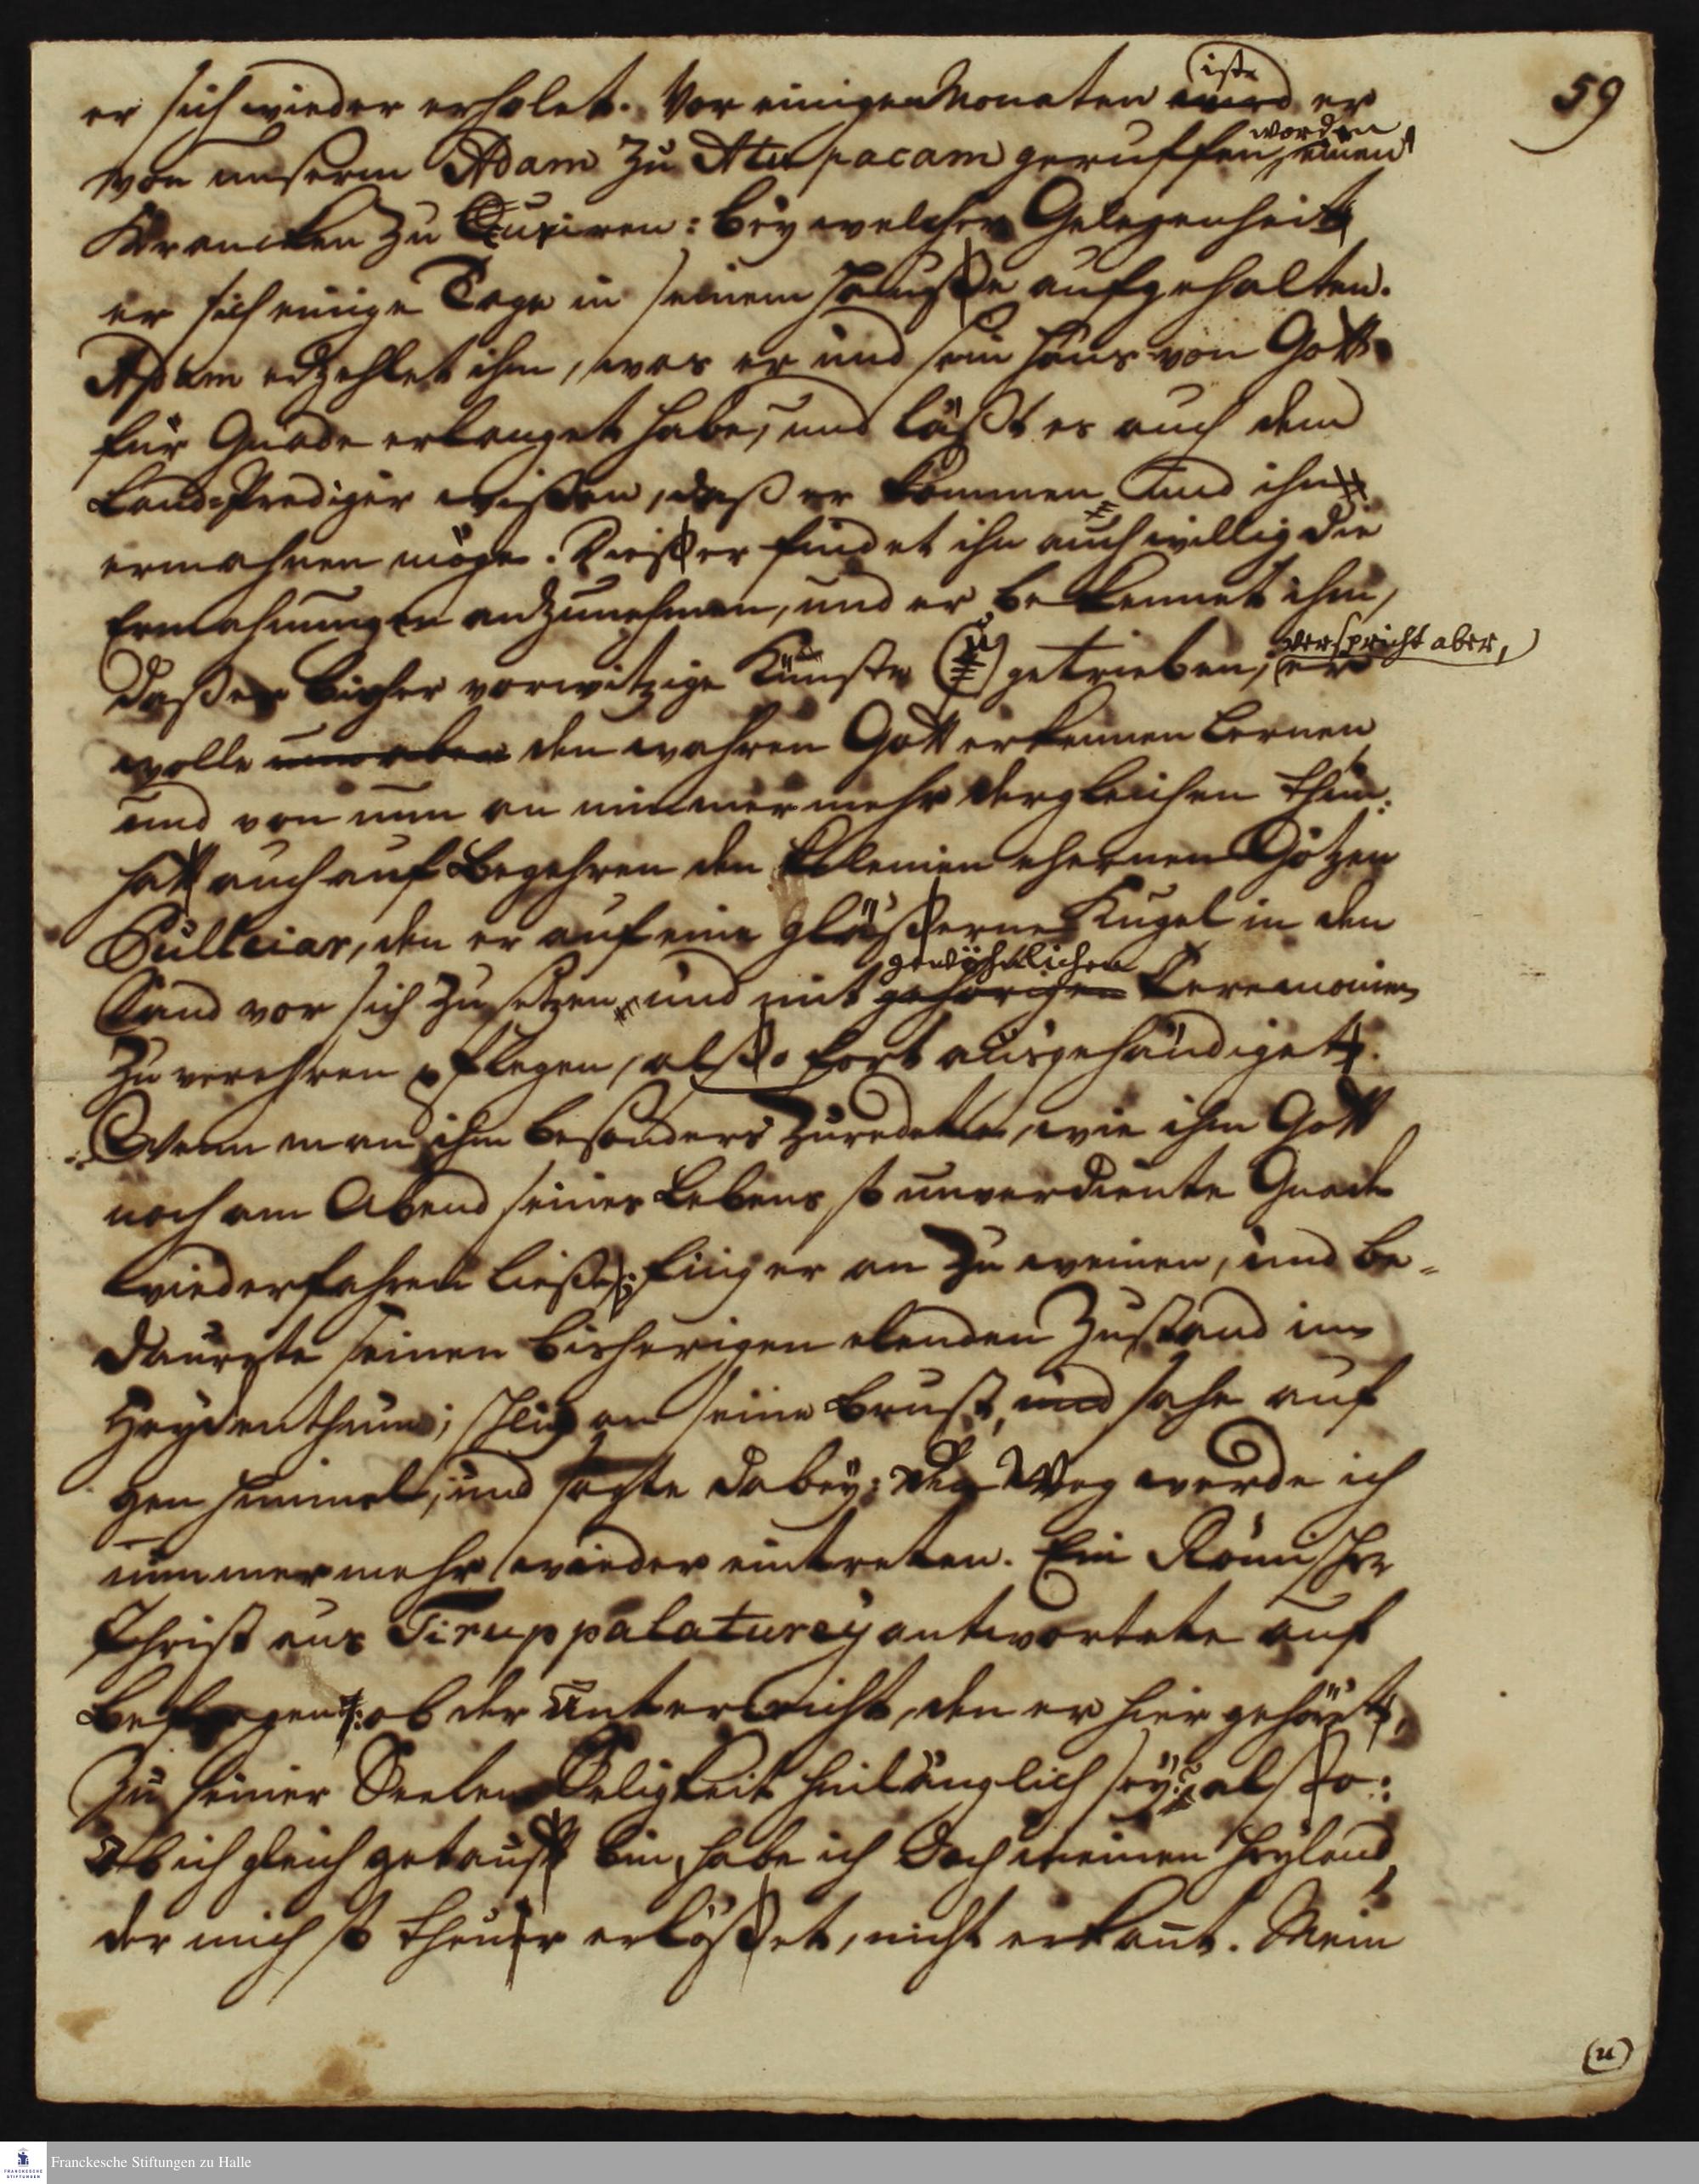 59
er sich wieder erholet. Vor einigen Monaten wird iste er
von unserm Adam zu Atupacam geruffen worden, einen
Krancken zu Curiren: bey welcher Gelegenheit
er sich einige Tage in seinem Hauße aufgehalten.
Adam erzehlet ihm, was er und sein Haus von Gott
für Gnade erlanget habe, und läßt es auch dem
Land-Prediger wißen, daß er kommen und ihn
ermahnen möge. Dießer findet ihn auch willig die
Ermahnungen anzunehmen, und er bekennet ihm,
daß er bisher vorwitzige Künste getrieben, verspricht aber, er
wolle nun aber den wahren Gott erkennen lernen
und von nun an nimmermehr dergleichen thun:
hatt auch auf Begehren den kleinen ehernen Götzen
Pulleiar, den er auf eine gläßerne Kugel in den
Sand vor sich zu setzen und mit gehörigen gewöhnlichen Ceremonien
zu verehren pflegen, alßo fort ausgehändiget.
Wenn man ihm besonders zuredete, wie ihm Gott
noch am Abend seines Lebens so unverdiente Gnade
wiederfahren ließe; fing er an zu weinen, und be-
daurete seinen bisherigen elenden Zustand im
Heydenthum; schlug an seine Brust, und sahe auf
gen Himmel, und sagte dabey: Den Weg werde ich
nimmermehr wieder eintreten. Ein Römischer
Christ aus Tiruppalaturey antwortete auf
Befragen: ob der Unterricht, den er hier gehört,
zu seiner Seelen Seligkeit hinlänglich sey? alßo:
Ob ich gleich getaufft bin, habe ich doch meinen Heyland,
der mich so theuer erlößet, nicht erkant. Mein
(u)
Franckesche Stiftungen zu Halle